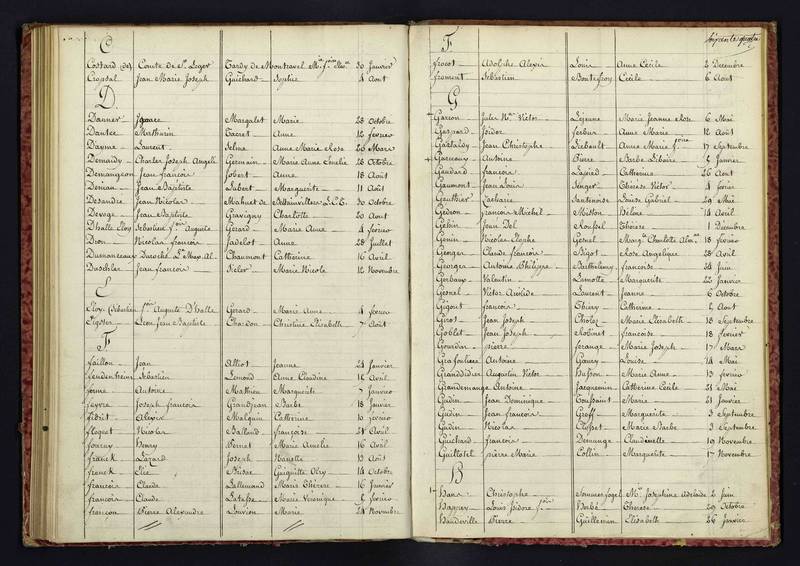 C
Costard (de) Comte de St. Leger Tardy de Montravel 30 Janvier
Cropsal Jean Marie Joseph Guichard Sophie 4 Aout
D
Danner Margalet Marie 28 Octobre
Dantec Mathurin Tacret Anne 12 fevrier
Dayme Laurent Selma Anne Marie Rose 26 Mars
Demaidy Charles Joseph Germain Marie Anne Emelie 28 Octobre
Demangeon Jean françois Jobert Anne 18 Août
Deman Jean Baptiste Lubert Marguerite 11 Août
Desandre Jean Nicolas Mahuet de 30 Octobre
Devoge Jean Baptiste Gravigny Charlotte 20 Aout
Dhalle Eloy Sebastien Auguste Gerard Marie Anne 4 fevrier
Dron Nicolas françois Jadelot Anne 28 Juillet
Chaumont Catherine 16 Avril
Duschler Jean francois Sicler Marie Nicole 12 Novembre
E
Eloy (Sebastien Auguste D'halle Gerard Marie Anne 4 fevrier
Leon Jean Baptiste Chardon Christine Elisabeth 7 Août
F
faillon Jean Alliot Jeanne 24 Janvier
feudenheim Sebastien Lemond Anne Claudine 12 Avril
ferme Antoine Mathieu Marguerite 7 Janvier
feyvre Joseph francois Grandjean Barbe 18 Janvier
Alexis Malquin Catherine 10 fevrier
floquet Nicolas Balland françoise 24 Avril
fourny Henry Pernet Marie Amelie 16 Avril
franck Lazard Joseph Nanette 13 Août
franck Elie Brisse Guiguette Olry 14 Octobre
francois Claude Lallemand Marie Thérèse 16 Janvier
françois Claude Latasse Marie Veronique 5 fevrier
françon Pierre Alexandre Louvion Marie 24 Novembre
soixante quatre
F
froset Adolphe Alexis Louis Anne Cécile 2 Décembre
froment Sébastien Bontefroy Cécile 6 Août
G
Garcon Jules Victor Lejeune Marie Jeanne Rose 6 Mai
Gaspard Isidor Ferbus Anne Marie 12 Août
Gastaldy Jean Christophe Liebault Anne Marie 17 Septembre
Antoine Pierre Barbe Libaire 5 Janvier
Gaudard françois Laprèd Catherine 26 Août
Gaumont Jean Louis Senger Therese Victor 4 fevrier
Gauthier Zacharie Santenoise Louise Gabriel 29 Mai
Gedron francois Michel Misson Hélène 14 Avril
Gehin Jean Del Roussel Therese 1 Décembre
Genin Nicolas Gesnel Charlotte 18 fevrier
Georges Claude françois Bigot Rose Angelique 28 Avril
Georges Antoine Philippe Barthelemy françoise 24 Juin
Gerbaux Valentin Lamotte Marguerite 22 Janvier
Gesnel Victor Aristide Laurent Jeanne 6 Octobre
Gigout francois Thiery Catherine 5 Août
Giros Jean Joseph Cholez Marie Elisabeth 18 Septembre
Goblet Jean Joseph Robinet francoise 18 fevrier
Gourdin pierre forange Marie Joseph 17 Mars
Grafoulière Antoine Gaury Louise 14 Mai
Granddidier Augustin Victor Husson Marie Anne 13 fevrier
Grandemange Antoine Jacquemin Catherine Cécile 21 Mai
Gudin Jean Dominique Toussaint Marie 21 Janvier
Gudin Jean francois Groff Marguerite 3 Septembre
Gudin Nicolas Closset Marie Barbe 3 Septembre
Guichard francois Demange Claudinette 19 Novembre
Guillotel pierre Marie Collin Marguerite 17 Novembre
H
Hans Christophe Josephine Adelaide 2 Juin
Happey Louis Isidore Herbé Therese 29 Octobre
Haudeville Pierre Guilleman Elisabeth 26 Janvier